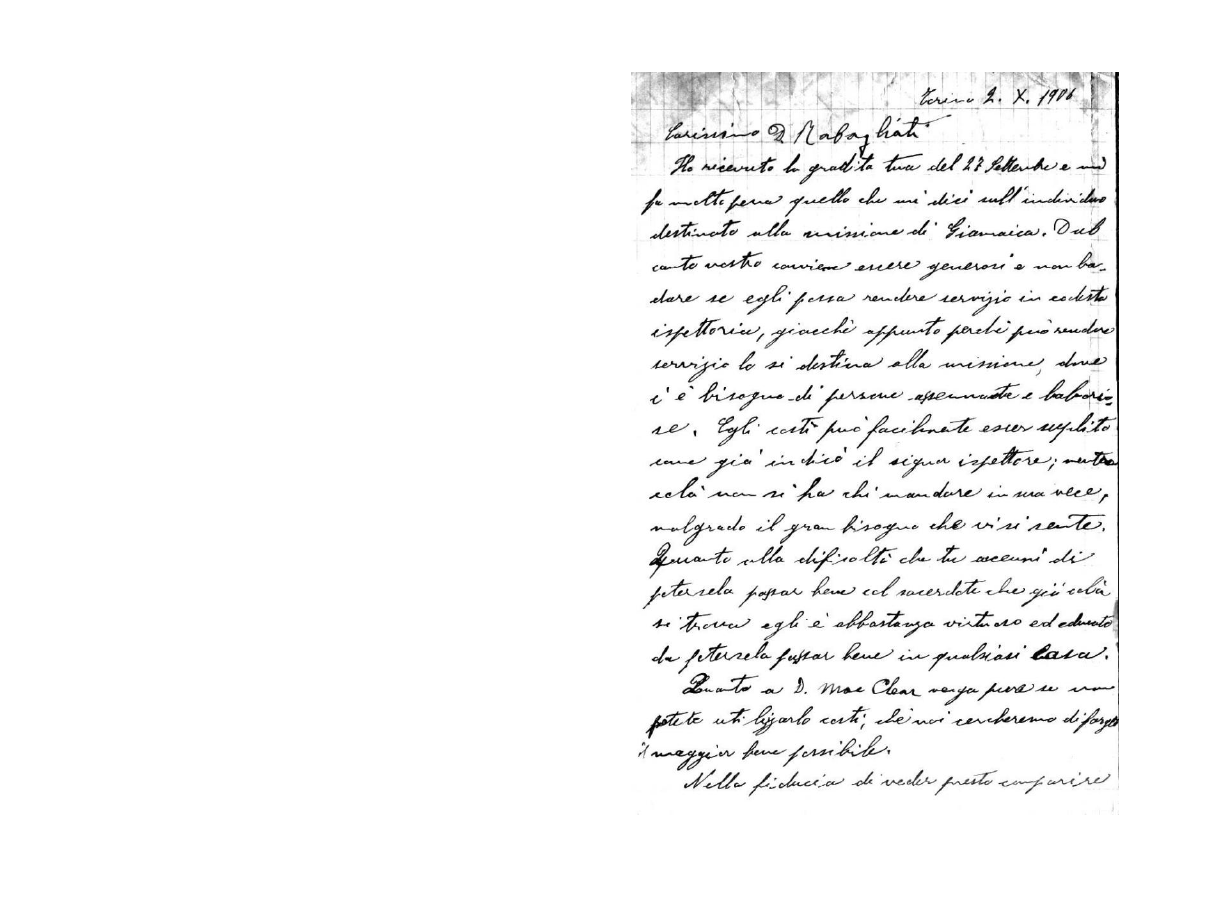 Torino 2. X. 1906
Carissimo D Rabagliati
Ho ricevuto la gradita tua del 27 Settembre e mi
fa molta pena quello che mi dici sull'individuo
destinato alla missione di Giamaica. Dal
canto vostro conviene essere generosi e non ba-
dare se egli possa rendere servizio in codesta
ispettoria, giacchè appunto perchè può rendere
servizio lo si destina alla missione, dove
c'è bisogno di persone assennate e laborio-
se. Egli costì può facilmente esser supplito
come già indicò il signor ispettore; mentre
colà non si ha chi mandare in sua vece,
malgrado il gran bisogno che vi si sente.
Quanto alla difficoltà che tu accenni di
potersela passar bene col sacerdote che già colà
si trova egli è abbastanza virtuoso ed educato
da potersela passar bene in qualsiasi casa.
Quanto a D. Mac Clear venga pure se non
potete utilizzarlo costì, chè noi cercheremo di fargli
il maggior bene possibile.
Nella fiducia di veder presto comparire